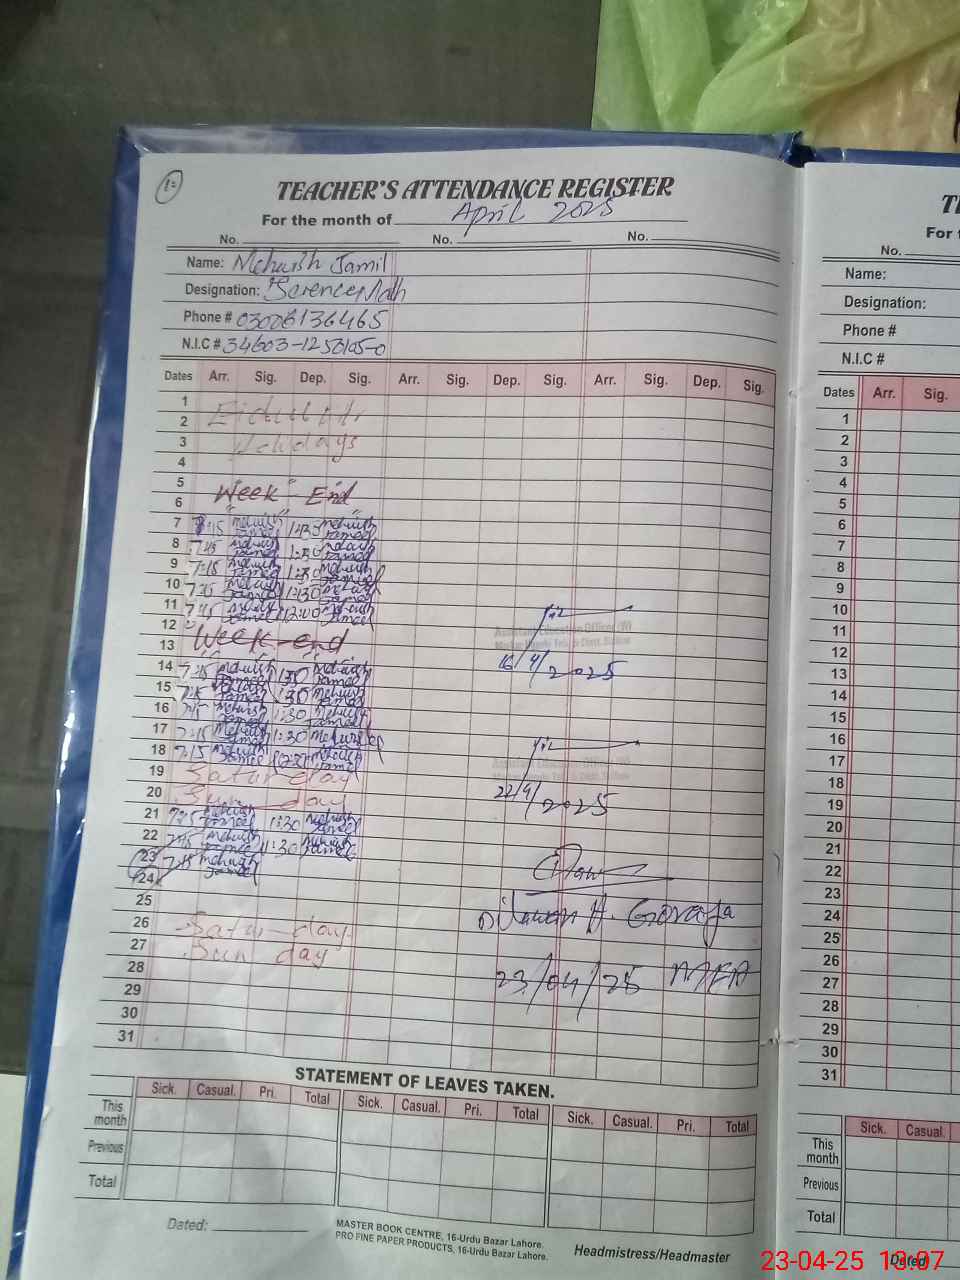 12
TEACHER'S ATTENDANCE REGISTER
For the month of April 2025
No. No. No.
Name: Mehwish Jamil
Designation: Science Math
Phone # 03006136465
N.I.C #
Dates Arr. Sig. Dep. Sig. Arr. Sig. Dep. Sig. Arr. Sig. Dep. Sig.
1
2
3 Holidays
4
5
6 Week End
7 1:30 Mehwish Jameel
8 7:45 Mehwish Jameel 1:30 Mehwish Jameel
9 7:15 Mehwish Jameel 1:30 Mehwish Jameel
10 7:15 Mehwish Jameel 1:30 Mehwish Jameel
11 7:45 Mehwish Jameel 12:00 Mehwish Jameel
12
13 Week-end
Assistant Education Officer (W)
16/4/2025
14 7:45 Mehwish Jameel 1:30 Mehwish Jameel
15 7:45 Mehwish Jameel 1:30 Mehwish Jameel
16 7:45 Mehwish Jameel 1:30 Mehwish Jameel
17 7:15 Mehwish 1:30 Mehwish
18 7:15 Mehwish Jameel Mehwish Jameel
19 Saturday
20 Sunday
Assistant Education Officer
22/4/2025
21 Mehwish Jameel 1:30 Mehwish Jameel
22 7:45 Mehwish Jameel 1:30 Mehwish Jameel
23 7:45 Mehwish Jameel
24
25
26 Saturday
27 Sunday
28
29
30
31
23/04/25 MEA
STATEMENT OF LEAVES TAKEN.
Sick. Casual. Pri. Total Sick. Casual. Pri. Total Sick. Casual. Pri. Total
This month
Previous
Total
Dated:
MASTER BOOK CENTRE, 16-Urdu Bazar Lahore.
PRO FINE PAPER PRODUCTS, 16-Urdu Bazar Lahore.
Headmistress/Headmaster
For
No.
Name:
Designation:
Phone #
N.I.C #
Dates Arr. Sig.
1
2
3
4
5
6
7
8
9
10
11
12
13
14
15
16
17
18
19
20
21
22
23
24
25
26
27
28
29
30
31
Sick. Casual.
This month
Previous
Total
Dated:
23-04-25 13:07